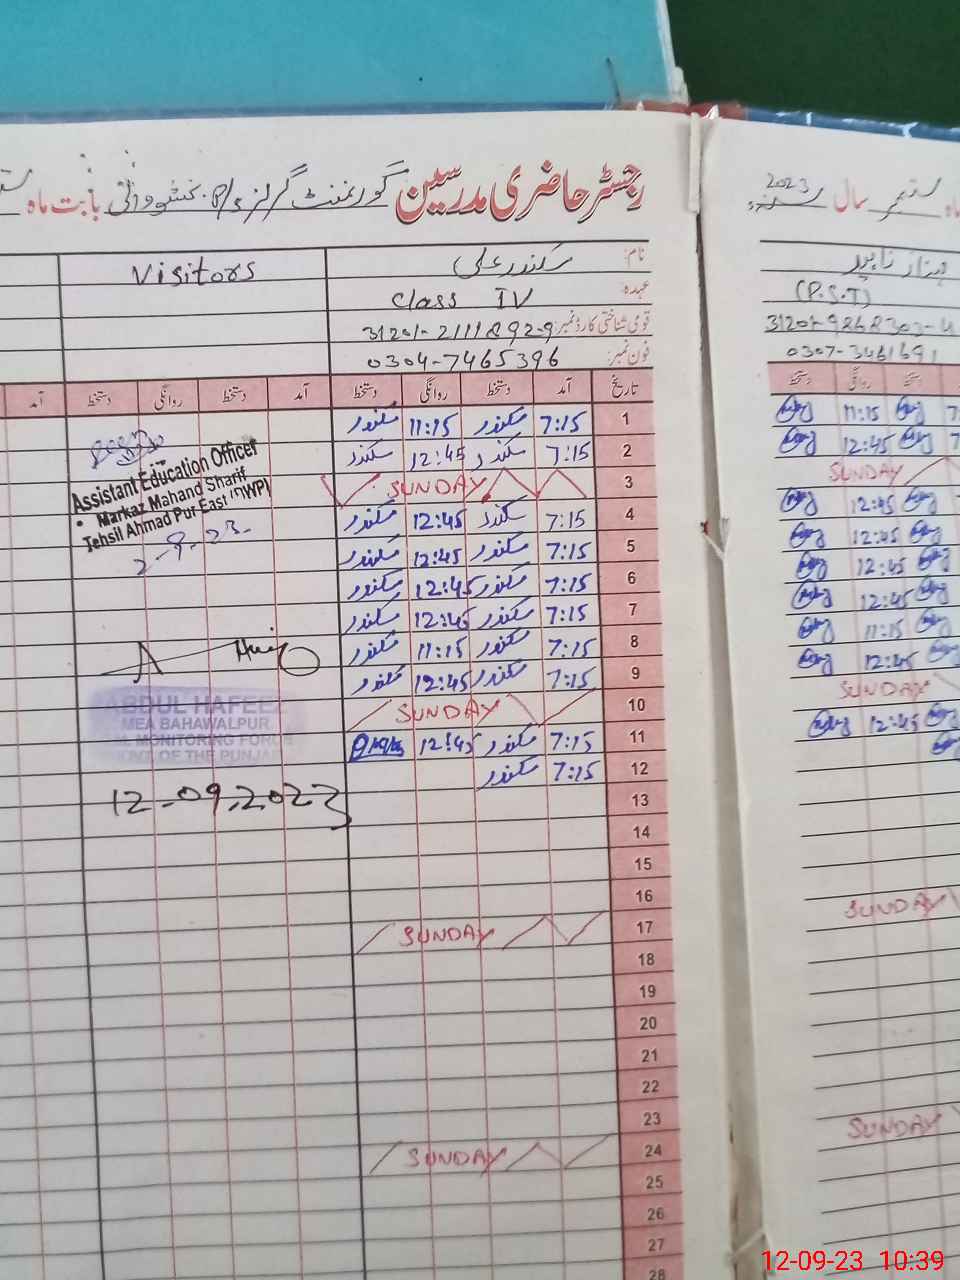 رجسٹر حاضری مدرسین گورنمنٹ گرلز P/S بابت ماہ
نام: سکندر علی
Visitors
عہدہ: Class IV
قومی شناختی کارڈ نمبر: 31201-2111892-9
فون نمبر: 0304-7465396
تاریخ آمد دستخط روانگی دستخط آمد دستخط روانگی دستخط آمد
1 7:15 سکندر 11:15 سکندر
2 7:15 سکندر 12:45 سکندر
3 SUNDAY
4 7:15 سکندر 12:45 سکندر
5 7:15 سکندر 12:45 سکندر
6 7:15 سکندر 12:45 سکندر
7 7:15 سکندر 12:45 سکندر
8 7:15 سکندر 11:15 سکندر
9 7:15 سکندر 12:45 سکندر
10 SUNDAY
11 7:15 سکندر 12:45
12 7:15 سکندر
13
14
15
16
17 SUNDAY
18
19
20
21
22
23
24 SUNDAY
25
26
27
28
Assistant Education Officer
Markaz Mahand Sharif
Tehsil Ahmad Pur East (DWP)
2-9-23
ABDUL HAFEEZ
MEA BAHAWALPUR
MONITORING FORCE
OF THE PUNJAB
12-09.2023
ماہ ستمبر سال 2023
(P.S.T)
31201-9868303-4
0307-3461691
دستخط روانگی دستخط
11:15
12:45
SUNDAY
12:45
12:45
12:45
12:45
11:15
12:45
SUNDAY
12:45
SUNDAY
SUNDAY
12-09-23 10:39